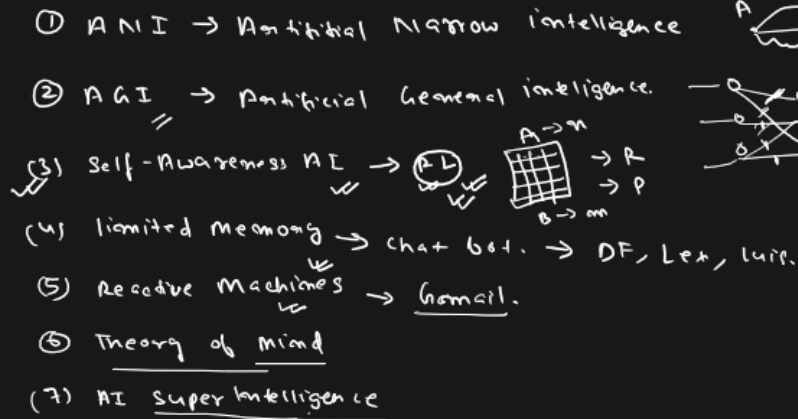 ① ANI → Artifitial Narrow intelligence A
② AGI → Artificial General inteligence.
(3) Self-Awareness AI → RL A → n → R → P B → m
(4) limited memory → Chat bot. → DF, Lex, luis.
(5) Reactive Machines → Gmail.
⑥ Theory of mind
(7) AI Super Intelligence